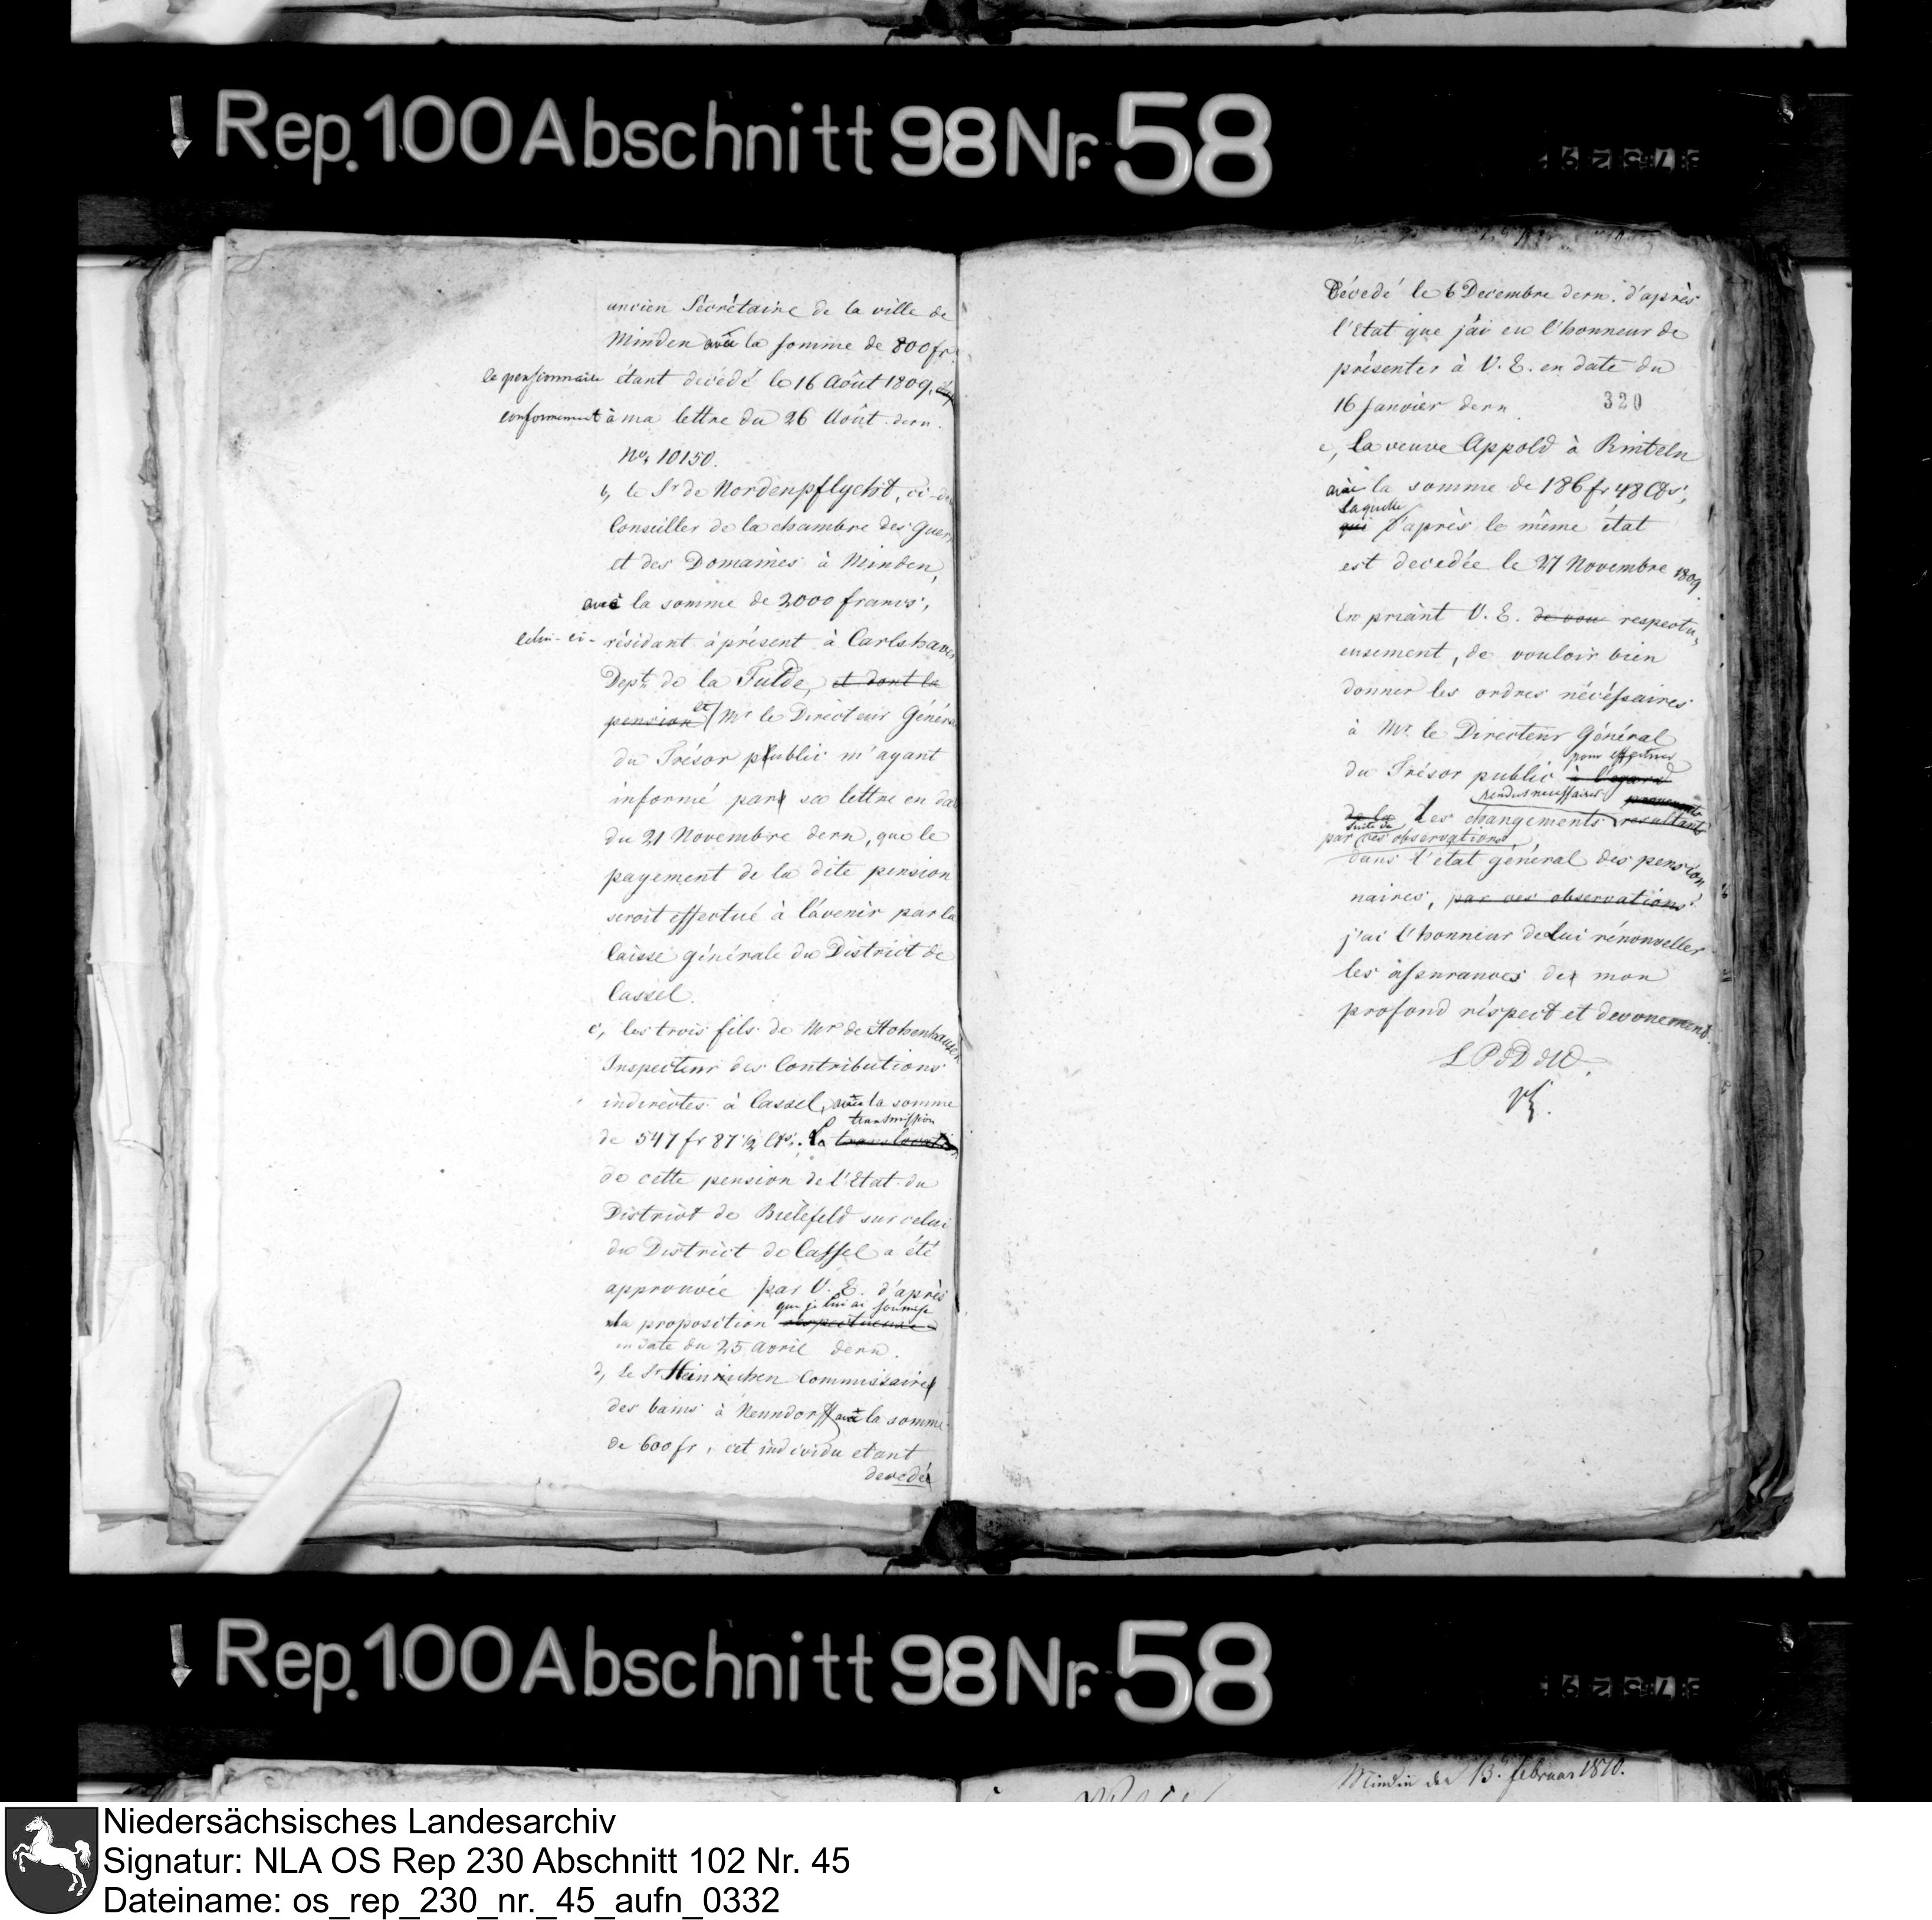 Rep. 100 Abschnitt 98 Nr. 58
ancien Sécrétaire de la ville de
Minden avec la somme de 800 fr.
le pensionnaire étant decédé le 16 Août 1809,
conformement à ma lettre du 26 Août dern.
No. 10150.
b, le Sr de Nordenpflycht, ci-de
Conseiller de la chambre des Guerr
et des Domaines à Minden,
avec la somme de 2000 francs,
celui-ci résidant à présent à Carlshaven
Dept. de la Fulde, et dont la
pension et Mr le Directeur Généra
du Trésor public m'ayant
informé par sa lettre en dat
du 21 Novembre dern, que le
payement de la dite pension
seroit effectué à l'avenir par la
Caisse générale du District de
Cassel.
c, les trois fils de Mr de Hohenhausen
Inspecteur des Contributions
indirectes à Cassel, avec la somme
transmission
de 547 fr 87 1/2 Cts. La translocation
de cette pension de l'Etat du
District de Bielefeld sur celui
du District de Cassel a été
approuvée par V. E. d'après
que je lui ai soumise
la proposition respectueuse
en date du 25 Avril dern.
d, le Sr Heinrichen Commissaire
des bains à Nenndorff avec la somme
de 600 fr, cet individu etant
decedé
Décedé le 6 Decembre dern. d'après
l'Etat que j'ai eu l'honneur de
présenter à V. E. en date du
16 Janvier dern.
320
e, La veuve Appold à Rinteln
avec la somme de 186 fr 48 Cts,
laquelle
qui d'après le même état
est decedée le 27 Novembre 1809.
En priant V. E. de vou respectu-
eusement, de vouloir bien
donner les ordres nécéssaires
à Mr. le Directeur Général
pour effectuer
du Trésor public à l'egard
rendus necessaires provenants
de la Les changements resultants
par suite de ces observations,
dans l'état général des pension
naires, par ces observations.
j'ai l'honneur de Lui rénouveller
les assurances de mon
profond réspect et devouement.
L P d D d W.
Rep. 100 Abschnitt 98 Nr. 58
Minden den 13. Februar 1810.
Niedersächsisches Landesarchiv
Signatur: NLA OS Rep 230 Abschnitt 102 Nr. 45
Dateiname: os_rep_230_nr._45_aufn_0332